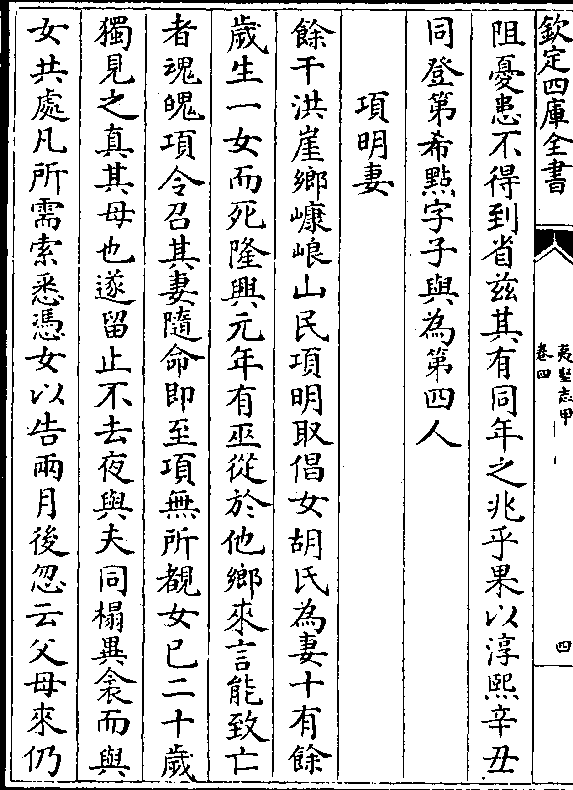 欽定四庫全書
夷堅志甲
卷四
四
阻憂患不得到省兹其有同年之兆乎果以淳熙辛丑
同登第希㸃字子與為第四人
項明妻
餘干洪崖鄉嵻㟍山民項明取倡女胡氏為妻十有餘
歲生一女而死隆興元年有巫從於他鄉來言能致亡
者魂魄項令召其妻隨命即至項無所覩女已二十歲
獨見之真其母也遂留止不去夜與夫同榻異衾而與
女共處凡所需索悉憑女以告兩月後忽云父母來仍